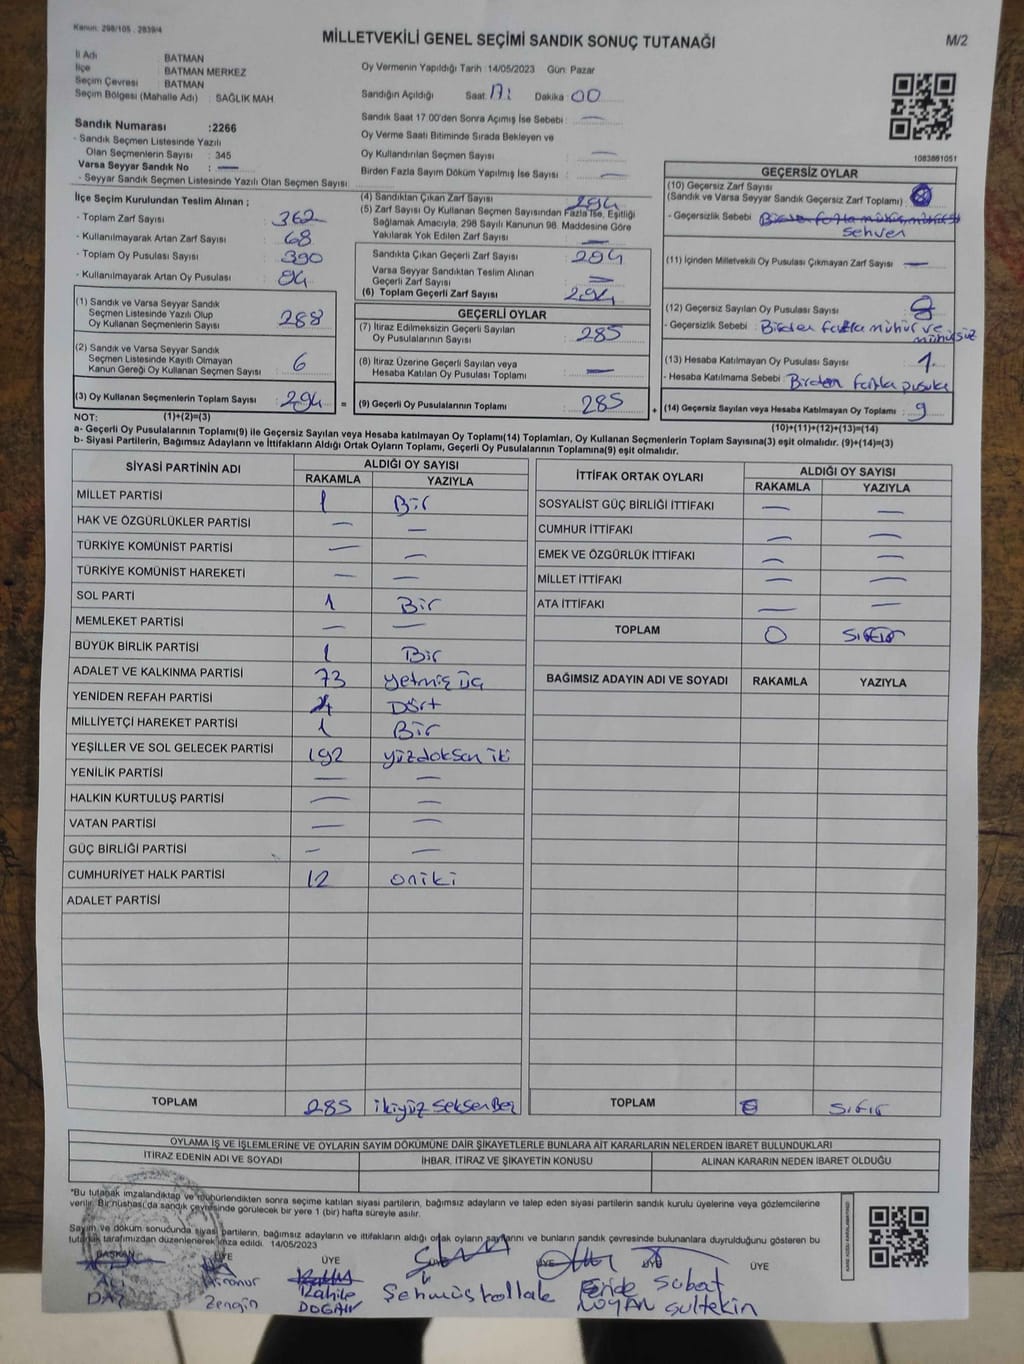 Kanun: 298/105 . 2839/4
MİLLETVEKİLİ GENEL SEÇİMİ SANDIK SONUÇ TUTANAĞI
M/2
İl Adı : BATMAN
İlçe : BATMAN MERKEZ
Seçim Çevresi : BATMAN
Seçim Bölgesi (Mahalle Adı) : SAĞLIK MAH
Oy Vermenin Yapıldığı Tarih :14/05/2023 Gün: Pazar
Sandığın Açıldığı Saat: 17: Dakika 00
Sandık Saat 17.00'den Sonra Açımış İse Sebebi : —
Oy Verme Saati Bitiminde Sırada Bekleyen ve
Oy Kullandırılan Seçmen Sayısı —
Birden Fazla Sayım Döküm Yapılmış İse Sayısı : —
Sandık Numarası :2266
- Sandık Seçmen Listesinde Yazılı
Olan Seçmenlerin Sayısı : 345
Varsa Seyyar Sandık No : —
- Seyyar Sandık Seçmen Listesinde Yazılı Olan Seçmen Sayısı:
1083661051
İlçe Seçim Kurulundan Teslim Alınan ;
- Toplam Zarf Sayısı : 362
- Kullanılmayarak Artan Zarf Sayısı : 68
- Toplam Oy Pusulası Sayısı : 390
- Kullanılmayarak Artan Oy Pusulası : 94
(1) Sandık ve Varsa Seyyar Sandık
Seçmen Listesinde Yazılı Olup
Oy Kullanan Seçmenlerin Sayısı : 288
(2) Sandık ve Varsa Seyyar Sandık
Seçmen Listesinde Kayıtlı Olmayan
Kanun Gereği Oy Kullanan Seçmen Sayısı : 6
(3) Oy Kullanan Seçmenlerin Toplam Sayısı : 294 =
(4) Sandıktan Çıkan Zarf Sayısı : 294
(5) Zarf Sayısı Oy Kullanan Seçmen Sayısından Fazla İse, Eşitliği
Sağlamak Amacıyla, 298 Sayılı Kanunun 98. Maddesine Göre
Yakılarak Yok Edilen Zarf Sayısı : —
Sandıkta Çıkan Geçerli Zarf Sayısı : 294
Varsa Seyyar Sandıktan Teslim Alınan
Geçerli Zarf Sayısı : —
(6) Toplam Geçerli Zarf Sayısı : 294
GEÇERLİ OYLAR
(7) İtiraz Edilmeksizin Geçerli Sayılan
Oy Pusulalarının Sayısı : 285
(8) İtiraz Üzerine Geçerli Sayılan veya
Hesaba Katılan Oy Pusulası Toplamı : —
(9) Geçerli Oy Pusulalarının Toplamı : 285 +
GEÇERSİZ OYLAR
(10) Geçersiz Zarf Sayısı
(Sandık ve Varsa Seyyar Sandık Geçersiz Zarf Toplamı) :
- Geçersizlik Sebebi : Sehven
(11) İçinden Milletvekili Oy Pusulası Çıkmayan Zarf Sayısı : —
(12) Geçersiz Sayılan Oy Pusulası Sayısı : 8
- Geçersizlik Sebebi : Birden fazla mühür ve
mühürsüz
(13) Hesaba Katılmayan Oy Pusulası Sayısı : 1
- Hesaba Katılmama Sebebi : Birden fazla pusula
(14) Geçersiz Sayılan veya Hesaba Katılmayan Oy Toplamı : 9
NOT: (1)+(2)=(3)
(10)+(11)+(12)+(13)=(14)
a- Geçerli Oy Pusulalarının Toplamı(9) ile Geçersiz Sayılan veya Hesaba katılmayan Oy Toplamı(14) Toplamları, Oy Kullanan Seçmenlerin Toplam Sayısına(3) eşit olmalıdır. (9)+(14)=(3)
b- Siyasi Partilerin, Bağımsız Adayların ve İttifakların Aldığı Ortak Oyların Toplamı, Geçerli Oy Pusulalarının Toplamına(9) eşit olmalıdır.
SİYASİ PARTİNİN ADI ALDIĞI OY SAYISI
RAKAMLA YAZIYLA
MİLLET PARTİSİ 1 Bir
HAK VE ÖZGÜRLÜKLER PARTİSİ — —
TÜRKİYE KOMÜNİST PARTİSİ — —
TÜRKİYE KOMÜNİST HAREKETİ — —
SOL PARTİ 1 Bir
MEMLEKET PARTİSİ — —
BÜYÜK BİRLİK PARTİSİ 1 Bir
ADALET VE KALKINMA PARTİSİ 73 yetmiş üç
YENİDEN REFAH PARTİSİ 4 Dört
MİLLİYETÇİ HAREKET PARTİSİ 1 Bir
YEŞİLLER VE SOL GELECEK PARTİSİ 192 yüzdoksan iki
YENİLİK PARTİSİ — —
HALKIN KURTULUŞ PARTİSİ — —
VATAN PARTİSİ — —
GÜÇ BİRLİĞİ PARTİSİ — —
CUMHURİYET HALK PARTİSİ 12 oniki
ADALET PARTİSİ
TOPLAM 285 ikiyüz seksen beş
İTTİFAK ORTAK OYLARI ALDIĞI OY SAYISI
RAKAMLA YAZIYLA
SOSYALİST GÜÇ BİRLİĞİ İTTİFAKI — —
CUMHUR İTTİFAKI — —
EMEK VE ÖZGÜRLÜK İTTİFAKI — —
MİLLET İTTİFAKI — —
ATA İTTİFAKI — —
TOPLAM 0 Sıfır
BAĞIMSIZ ADAYIN ADI VE SOYADI RAKAMLA YAZIYLA
TOPLAM 0 Sıfır
OYLAMA İŞ VE İŞLEMLERİNE VE OYLARIN SAYIM DÖKÜMÜNE DAİR ŞİKAYETLERLE BUNLARA AİT KARARLARIN NELERDEN İBARET BULUNDUKLARI
İTİRAZ EDENİN ADI VE SOYADI İHBAR, İTİRAZ VE ŞİKAYETİN KONUSU ALINAN KARARIN NEDEN İBARET OLDUĞU
"Bu tutanak imzalandıktan ve mühürlendikten sonra seçime katılan siyasi partilerin, bağımsız adayların ve talep eden siyasi partilerin sandık kurulu üyelerine veya gözlemcilerine
verilir. Bir nüshası da sandık çevresinde görülecek bir yere 1 (bir) hafta süreyle asılır.
Sayım ve döküm sonudunda siyasi partilerin, bağımsız adayların ve ittifakların aldığı ortak oyların sayılarını ve bunların sandık çevresinde bulunanlara duyrulduğunu gösteren bu
tutanak tarafımızdan düzenlenerek imza edildi. 14/05/2023
BAŞKAN ÜYE ÜYE ÜYE ÜYE ÜYE
Ali Zengin
Rahile DOĞAN
Feride Subat
NOYAN Gültekin